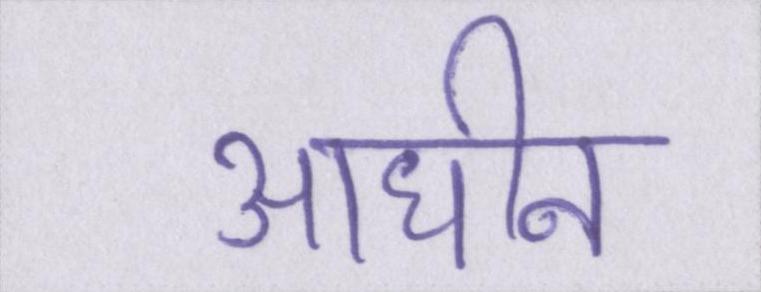 आधीन